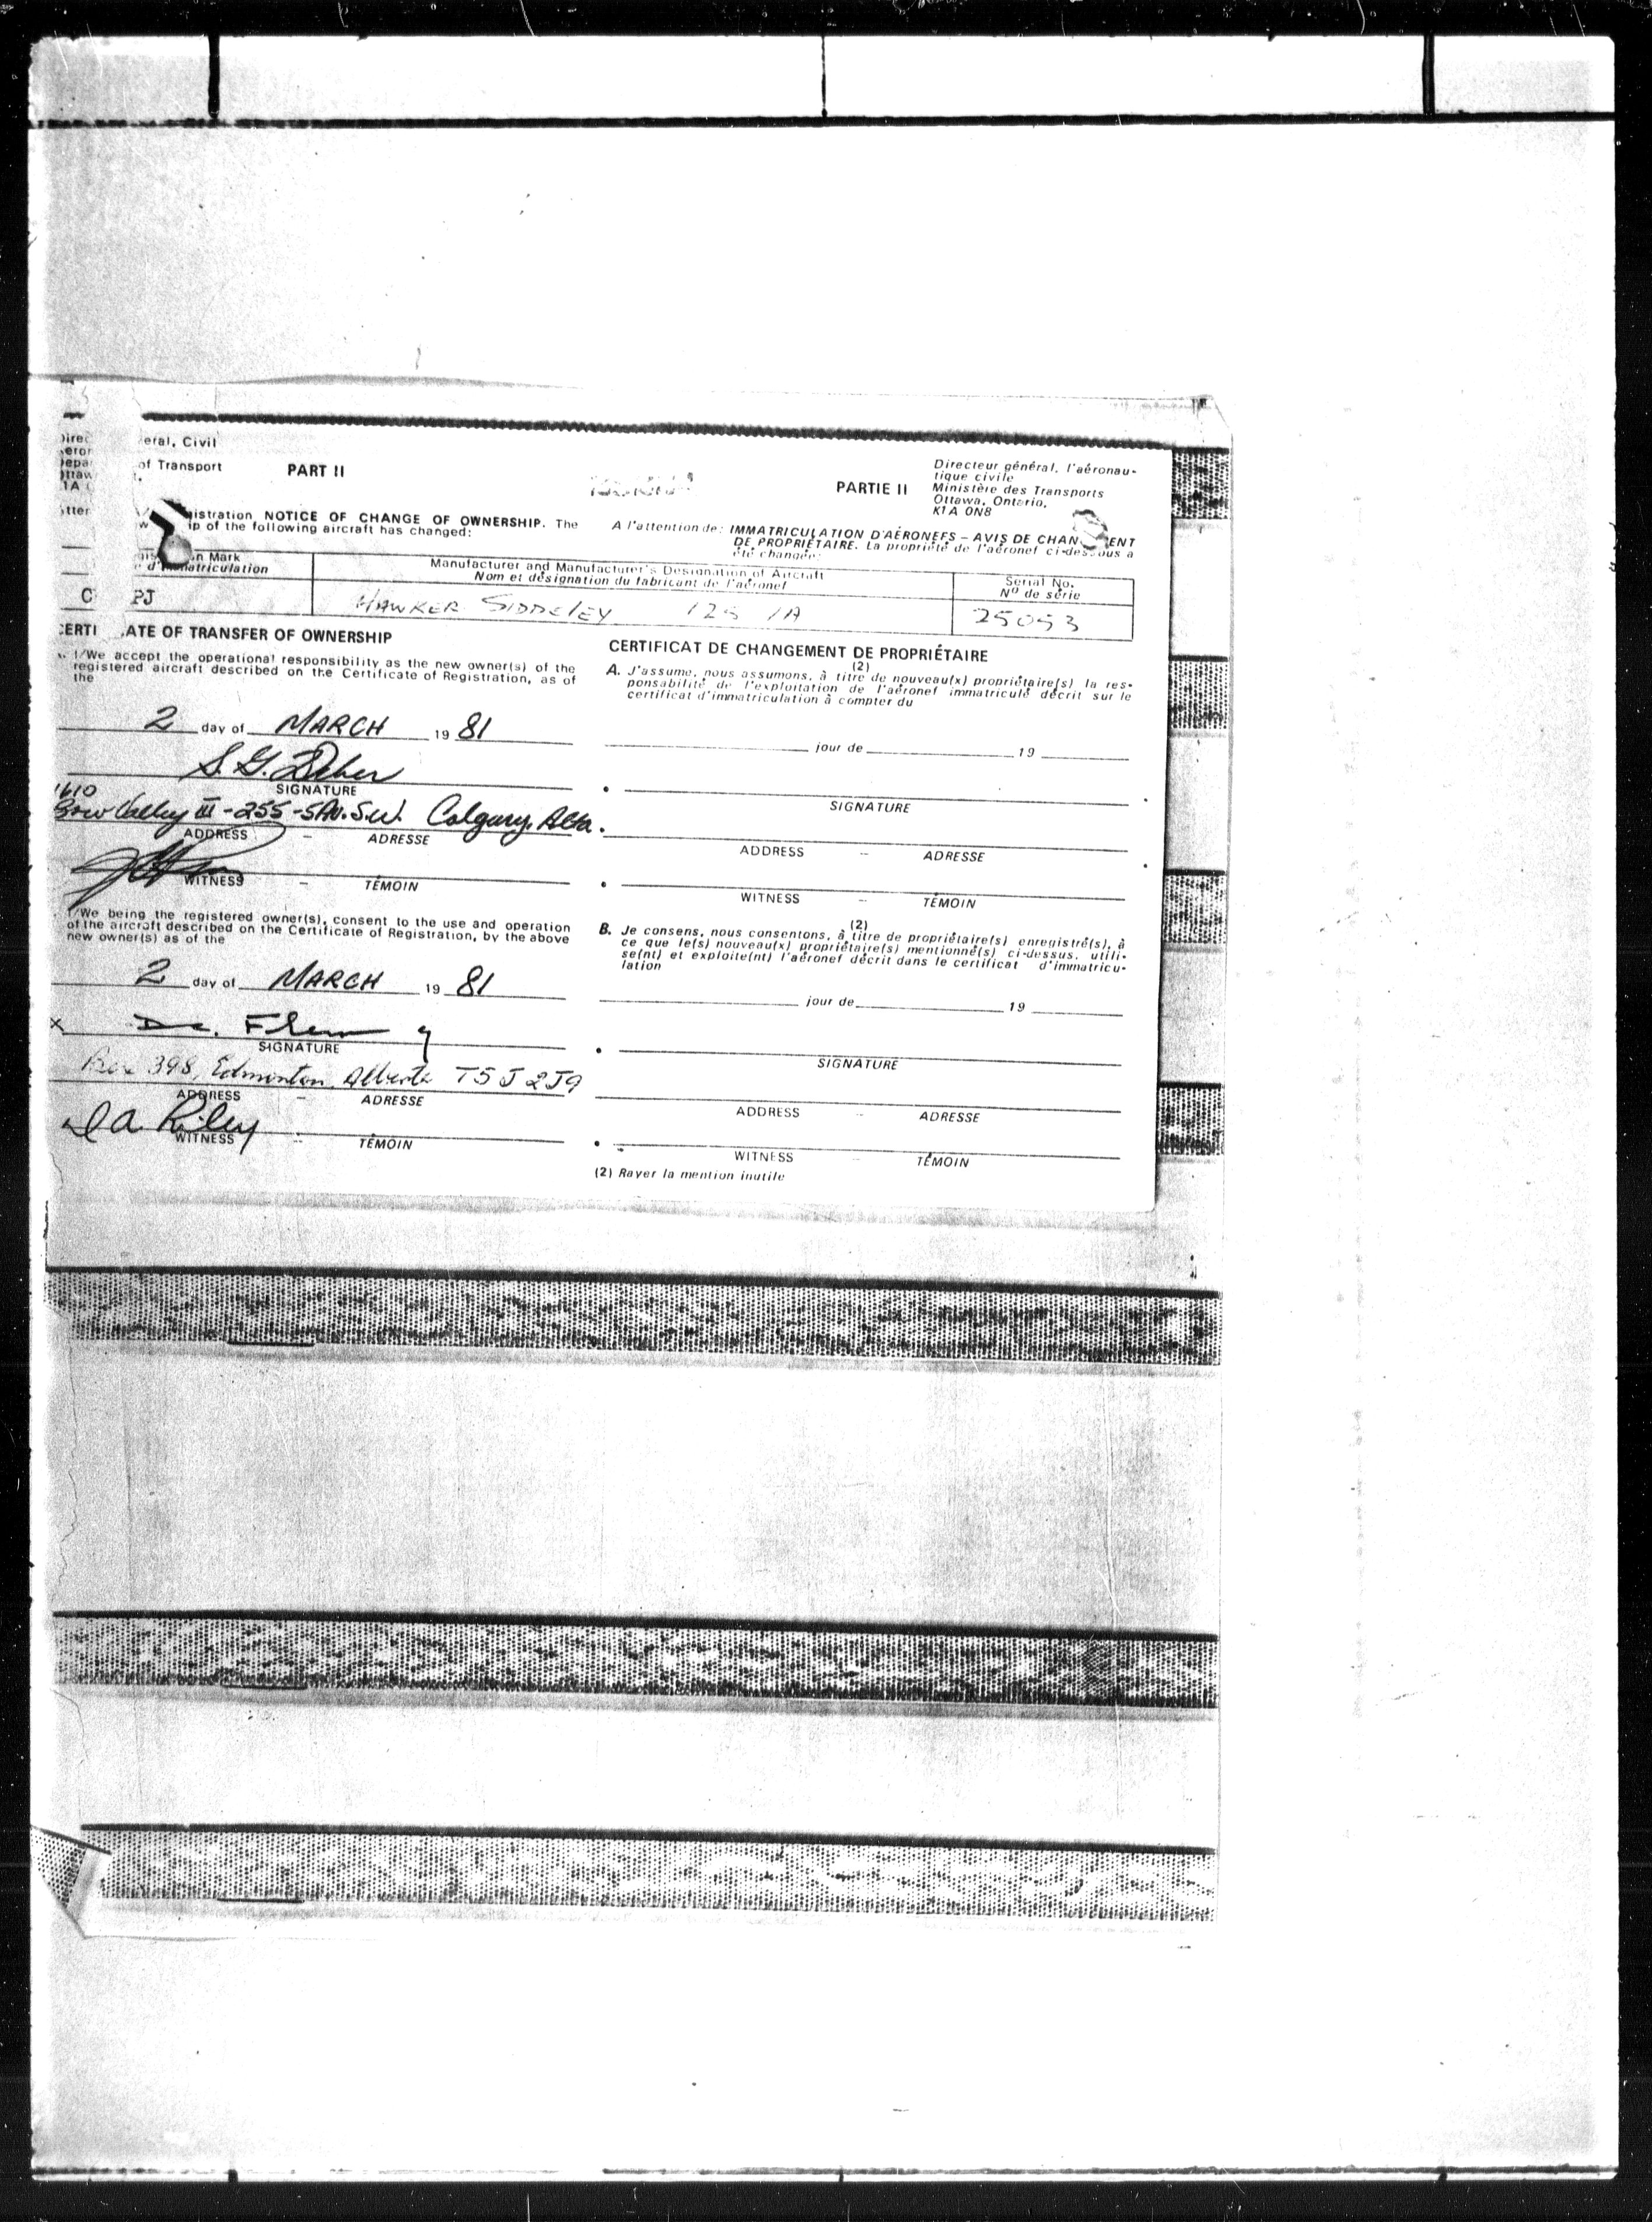 eral, Civil
of Transport
PART II
PARTIE II
Directeur général, l'aéronau-
tique civile
Ministère des Transports
Ottawa, Ontario.
K1A 0N8
istration NOTICE OF CHANGE OF OWNERSHIP. The
ip of the following aircraft has changed:
A l'attention de: IMMATRICULATION D'AÉRONEFS – AVIS DE CHAN ENT
DE PROPRIÉTAIRE. La propriété de l'aéronef ci-dessous a
été changée:
n Mark
d'immatriculation
Manufacturer and Manufacturer's Designation of Aircraft
Nom et désignation du fabricant de l'aéronef
Serial No.
No de série
C PJ
HAWKER SIDDELEY 125 1A
25053
CERTI ATE OF TRANSFER OF OWNERSHIP
I/We accept the operational responsibility as the new owner(s) of the
registered aircraft described on the Certificate of Registration, as of
the
2 day of MARCH 19 81
SIGNATURE
1610
Bow Valley III - 255 - 5 Av. S.W. Calgary, Alta.
ADDRESS – ADRESSE
WITNESS – TÉMOIN
I/We being the registered owner(s), consent to the use and operation
of the aircraft described on the Certificate of Registration, by the above
new owner(s) as of the
2 day of MARCH 19 81
X
SIGNATURE
Box 398, Edmonton, Alberta T5J 2J9
ADDRESS – ADRESSE
Riley
WITNESS – TÉMOIN
CERTIFICAT DE CHANGEMENT DE PROPRIÉTAIRE
(2)
A. J'assume, nous assumons, à titre de nouveau(x) propriétaire(s) la res-
ponsabilité de l'exploitation de l'aéronef immatriculé décrit sur le
certificat d'immatriculation à compter du
jour de 19
SIGNATURE
ADDRESS – ADRESSE
WITNESS – TÉMOIN
(2)
B. Je consens, nous consentons, à titre de propriétaire(s) enregistré(s), à
ce que le(s) nouveau(x) propriétaire(s) mentionné(s) ci-dessus, utili-
se(nt) et exploite(nt) l'aéronef décrit dans le certificat d'immatricu-
lation
jour de 19
SIGNATURE
ADDRESS – ADRESSE
WITNESS – TÉMOIN
(2) Rayer la mention inutile